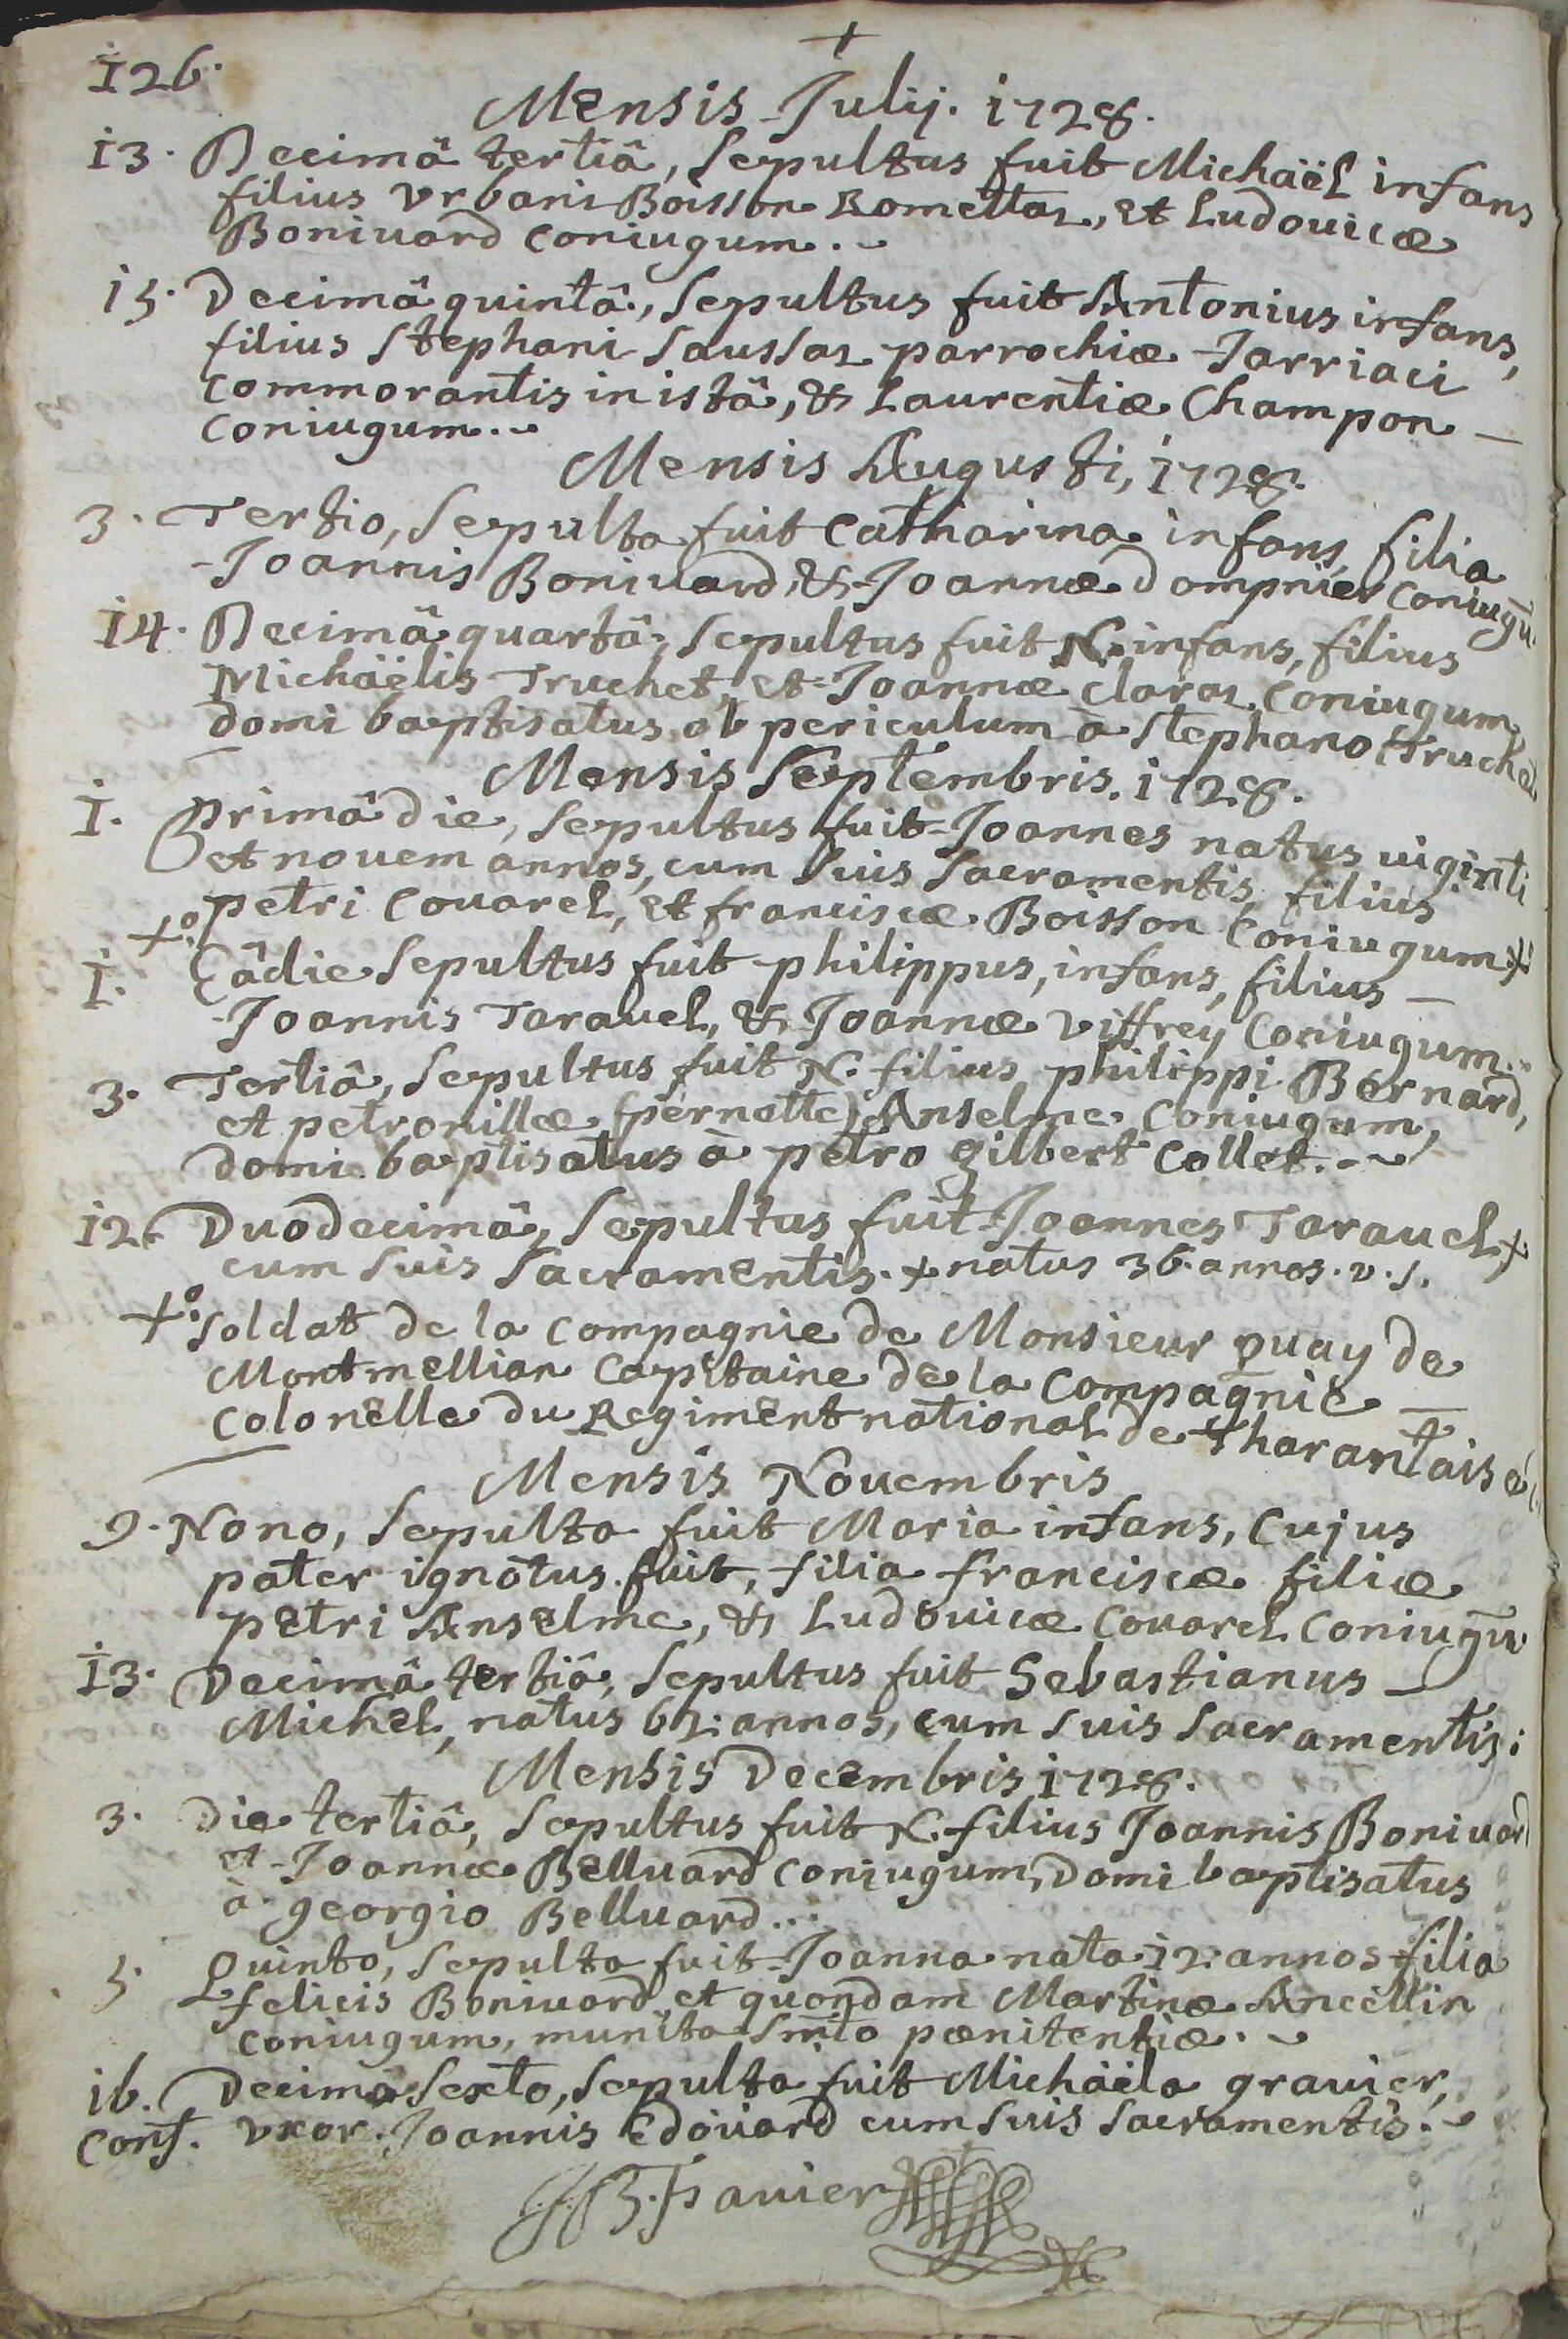 +
126.
Mensis Julij. 1728.
13. Decimâ tertiâ, sepultus fuit Michaël infans
filius Vrbani Boisson Romettaz, et Ludouicæ
Boniuard coniugum.
15. Decimâ quintâ, sepultus fuit Antonius infans,
filius Stephani Saussaz parrochiæ Jarriaci
commorantis in istâ, & Laurentiæ Champon
coniugum.
Mensis Augusti, 1728.
3. Tertio, sepulta fuit Catharina infans, filia
Joannis Boniuard, & Joannæ Dompnier coniugū.
14. Decimâ quartâ, sepultus fuit N. infans, filius
Michaëlis Truchet, et Joannæ Claraz coniugum,
domi baptisatus ob periculum à Stephano Truchet
Mensis Septembris. 1728.
1. Primâ die, sepultus fuit Joannes natus uiginti
et nouem annos, cum suis sacramentis, filius
petri Couarel, et franciscæ Boisson coniugum +
1. +o Eâdie sepultus fuit philippus, infans, filius
Joannis Tarauel, & Joannæ Viffrey coniugum.
3. Tertiâ, sepultus fuit N. filius philippi Bernard,
et petronillæ (pernette) Anselme coniugum,
domi baptisatus à petro gilbert Collet.
12. Duodecimâ, sepultus fuit Joannes Tarauel +
cum suis sacramentis. + natus 36. annos. v. s.
+o soldat de la compagnie de Monsieur quay de
Montmellian Capitaine de la Compagnie
Colonelle du Regiment national de Tharantaise
Mensis Nouembris
9. Nono, sepulta fuit Maria infans, cujus
pater ignotus fuit, filia franciscæ filiæ
petri Anselme, & Ludouicæ Couarel coniugū
13. Decimâ tertiâ, sepultus fuit Sebastianus
Michel, natus 62. annos, cum suis sacramentis:
Mensis Decembris 1728.
3. Die tertiâ, sepultus fuit N. filius Joannis Boniuard
et Joannæ Belluard coniugum, domi baptisatus
à georgio Belluard...
5. Quinto, sepulta fuit Joanna nata 12. annos filia
felicis Boniuard, et quondam Martinæ Ancellin
coniugum, munita Smto pænitentiæ.
16. Decimo sexto, sepulta fuit Michaëla grauier,
Conf. vxor Joannis Edoüard cum suis sacramentis.